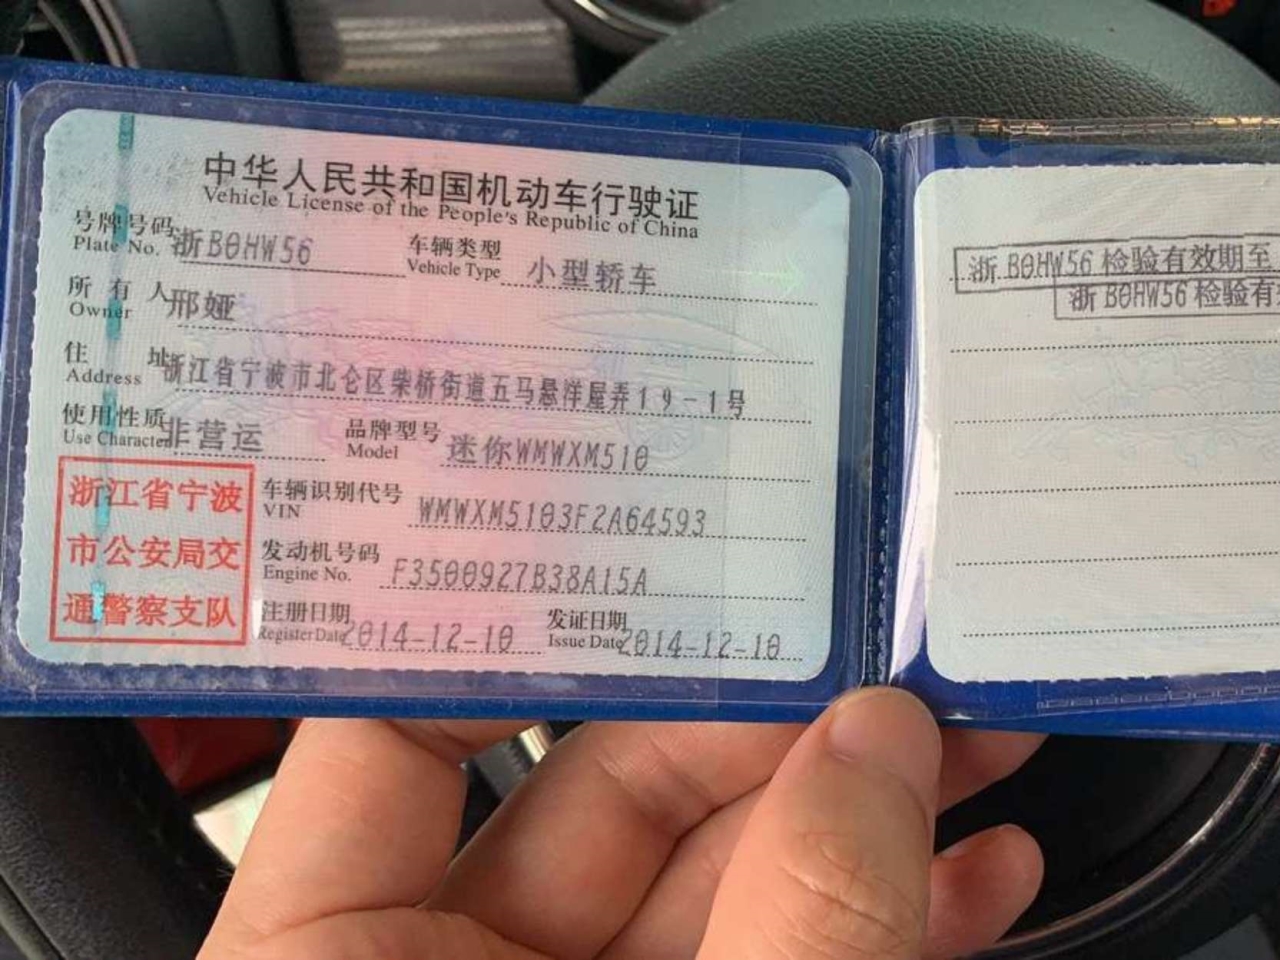 中华人民共和国机动车行驶证
Vehicle License of the People's Republic of China
号牌号码 浙B0HW56 车辆类型 小型轿车
Plate No. Vehicle Type
所有人 邢娅
Owner
住址 浙江省宁波市北仑区柴桥街道五马悬洋屋弄19-1号
Address
使用性质 非营运 品牌型号 迷你WMWXM510
Use Character Model
浙江省宁波
市公安局交
通警察支队
车辆识别代号 WMWXM5103F2A64593
VIN
发动机号码 F3500927B38A15A
Engine No.
注册日期 2014-12-10 发证日期 2014-12-10
Register Date Issue Date
浙B0HW56检验有效期至
浙B0HW56检验有